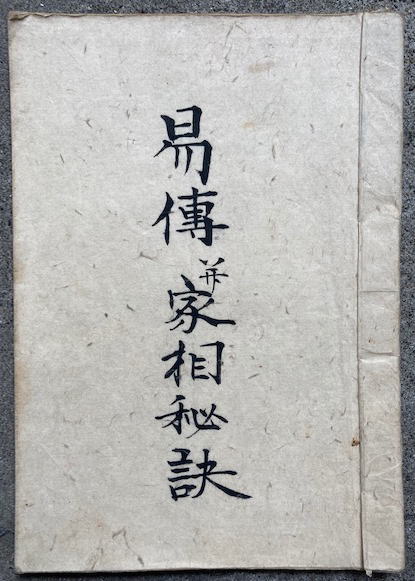 易傳并家相秘訣